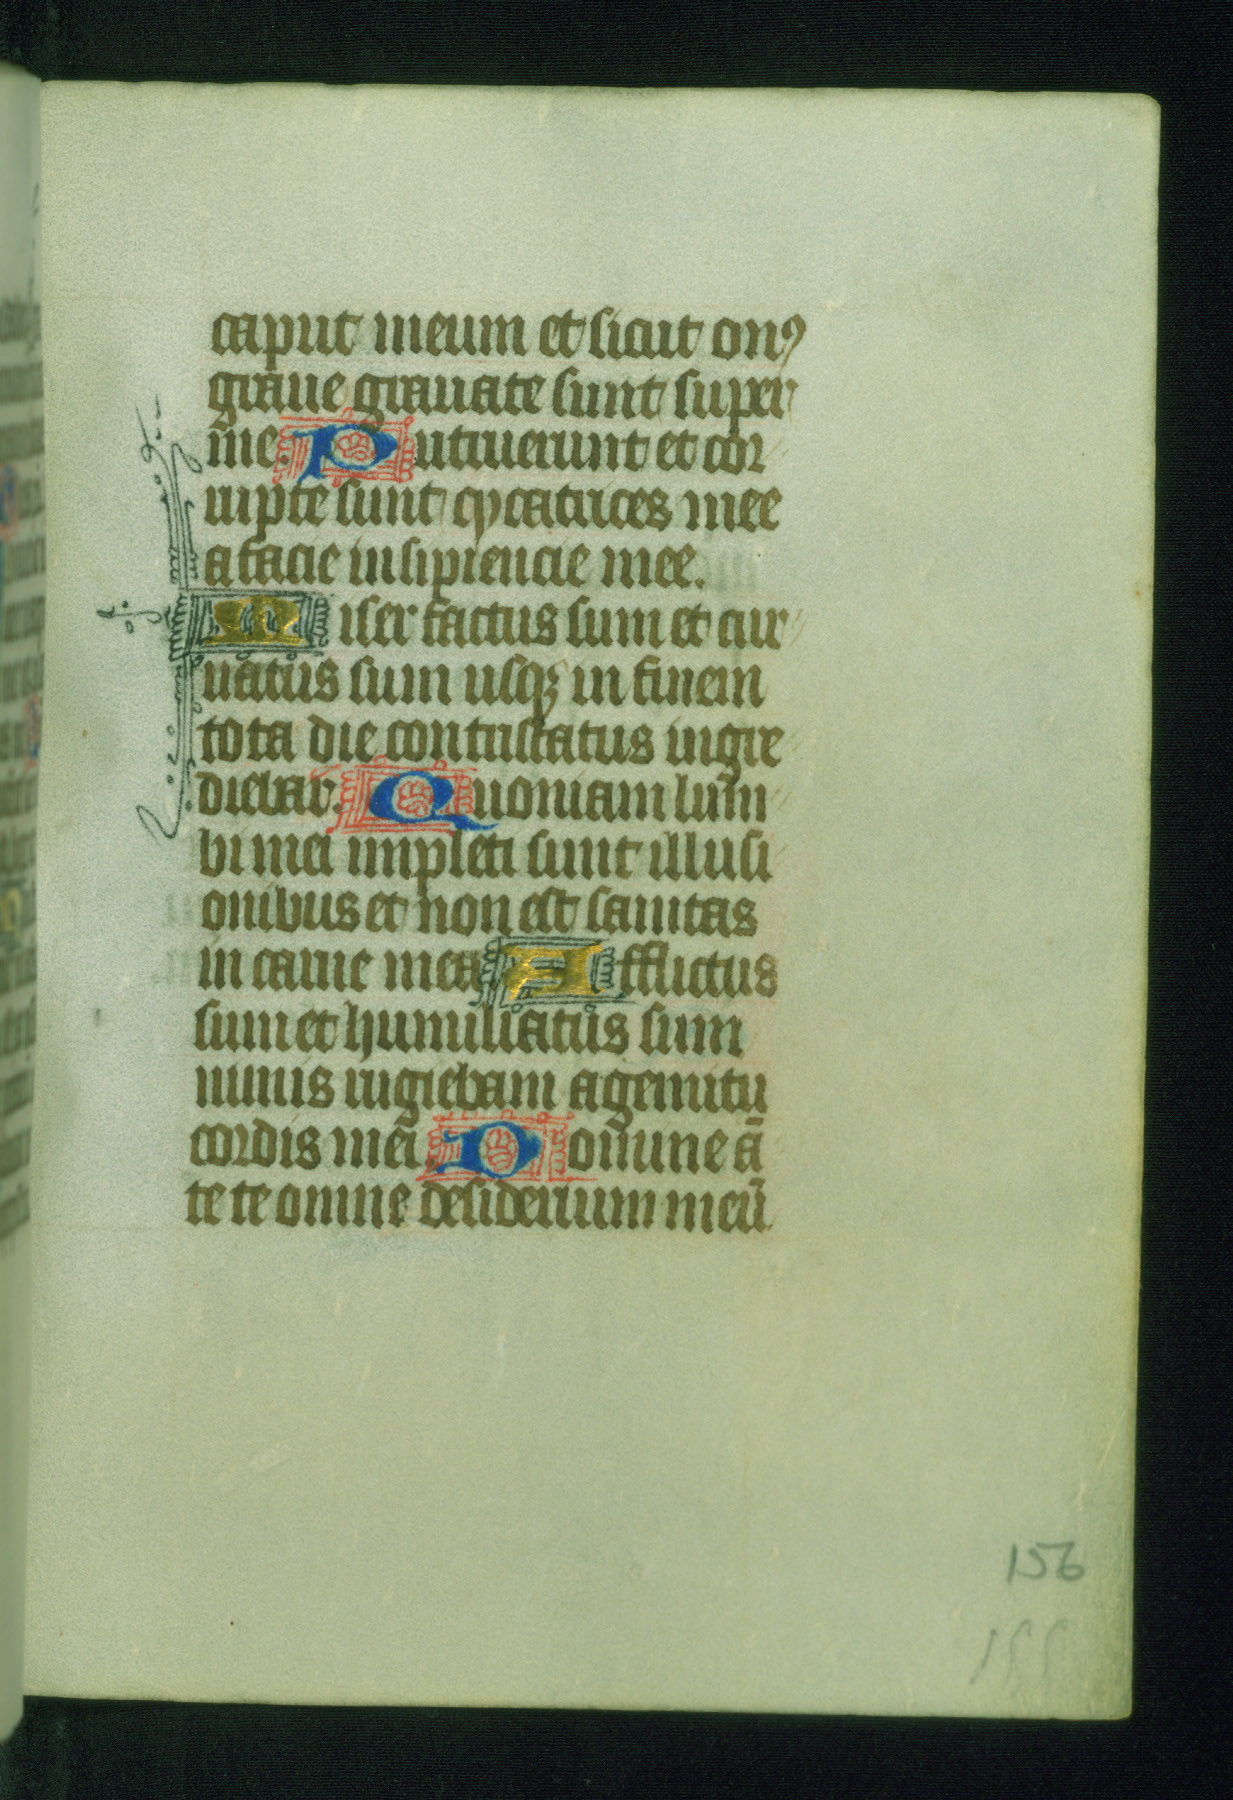 caput meum et sicut onꝰ
graue grauate sunt super
me. Putruerunt et cor
rupte sunt cycatrices mee
a facie insipiencie mee.
Miser factus sum et cur
uatus sum usqꝫ in finem
tota die contristatus ingre
diebar. Quoniam lum
bi mei impleti sunt illusi
onibus et non est sanitas
in carne mea Afflictus
sum et humiliatus sum
nimis rugiebam a gemitu
cordis mei. Domine ā
te te omne desiderium meū
156